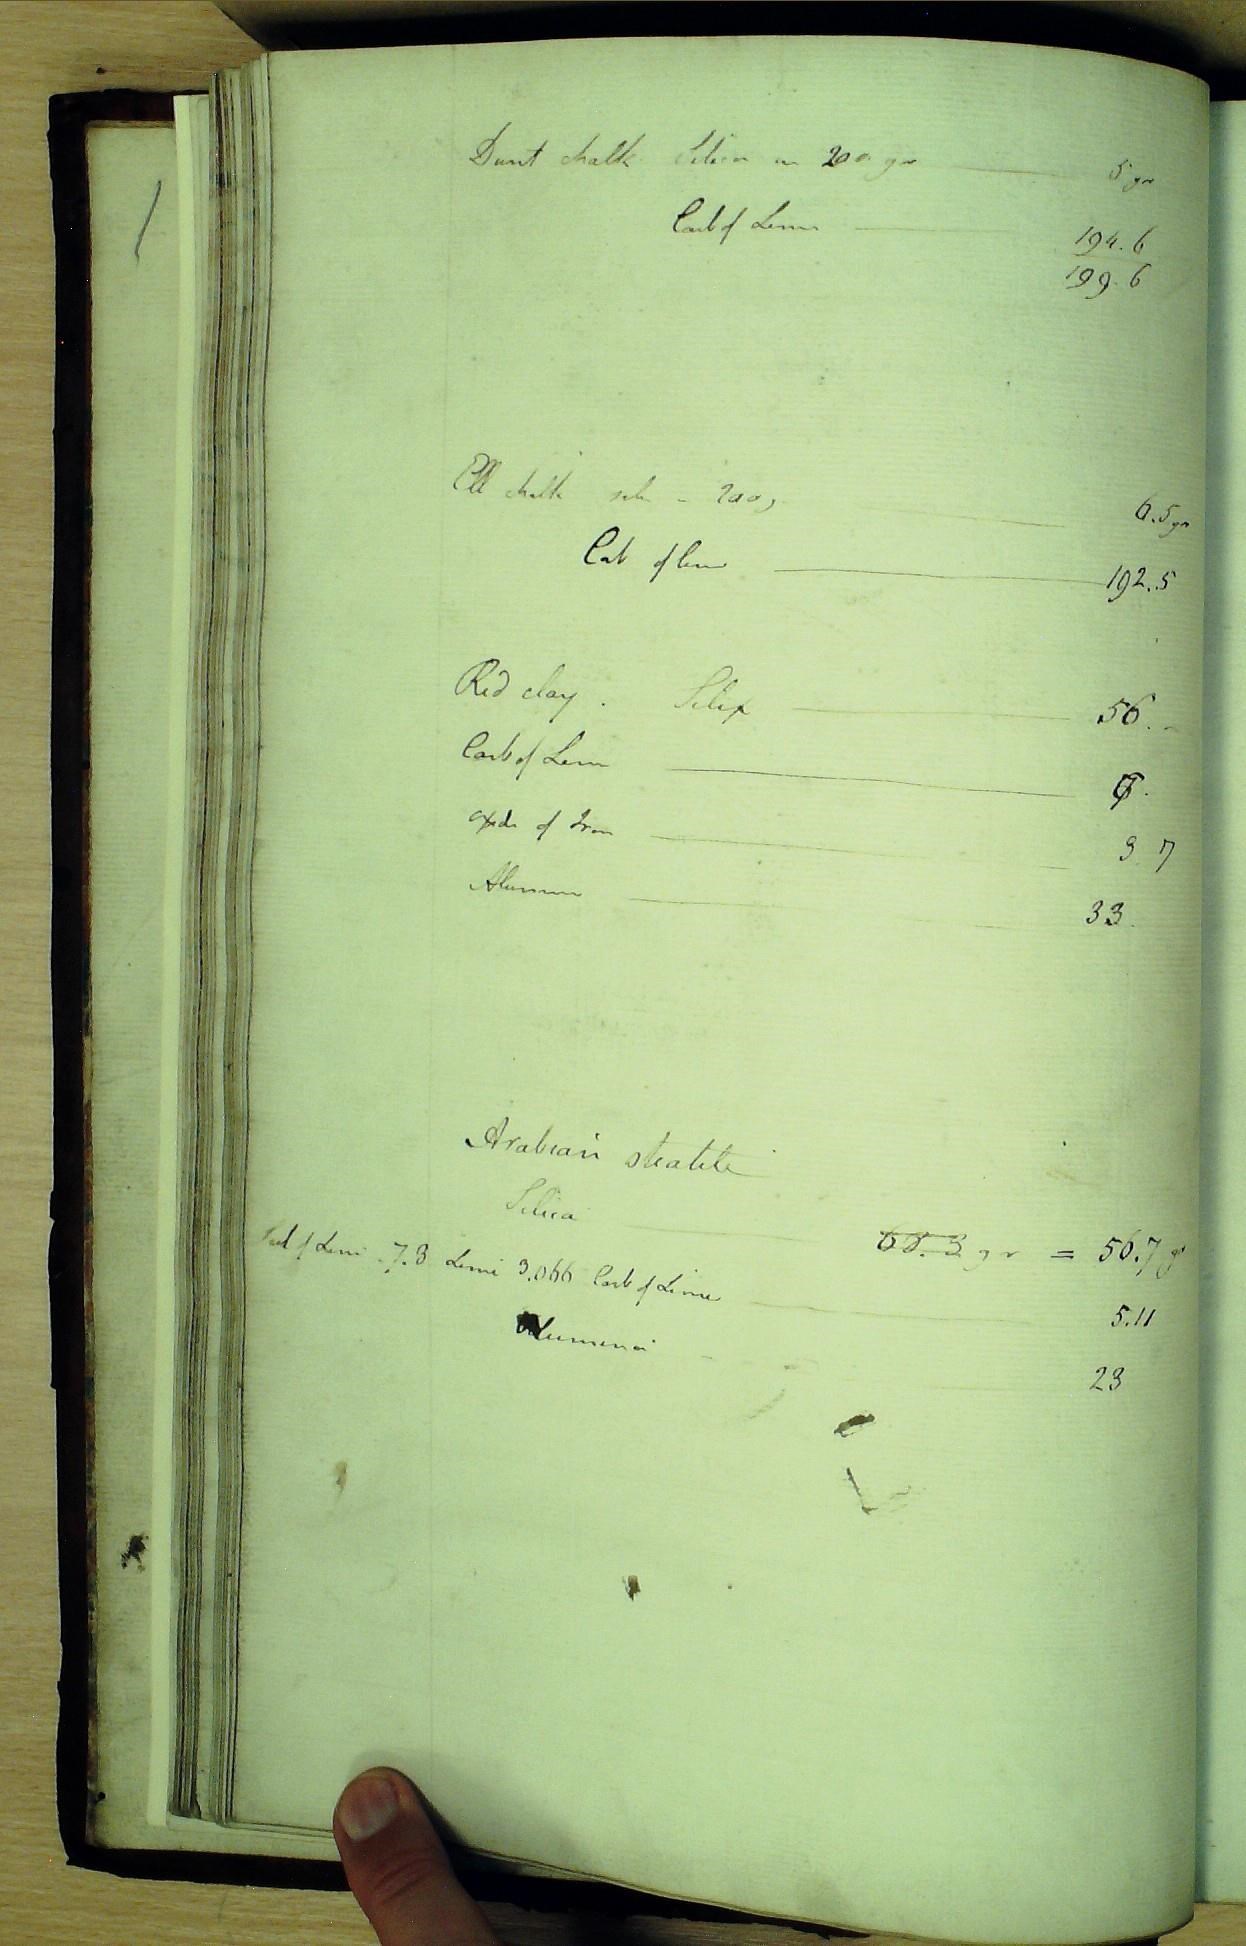 Burnt chalk Silica in 200 gr — 5 gr
Carb of Lime — 194.6
199.6
chalk — 200 — 6.5 gr
Carb of lime — 192.5
Red clay. Silex — 56.
Carb of Lime —
oxide of Iron — 3 7
Alumina — 33
Arabian steatite
Silica — gr = 56.7 gr
of Lime 7.8 Lime 3.066 Carb of Lime — 5.11
Alumina — 23